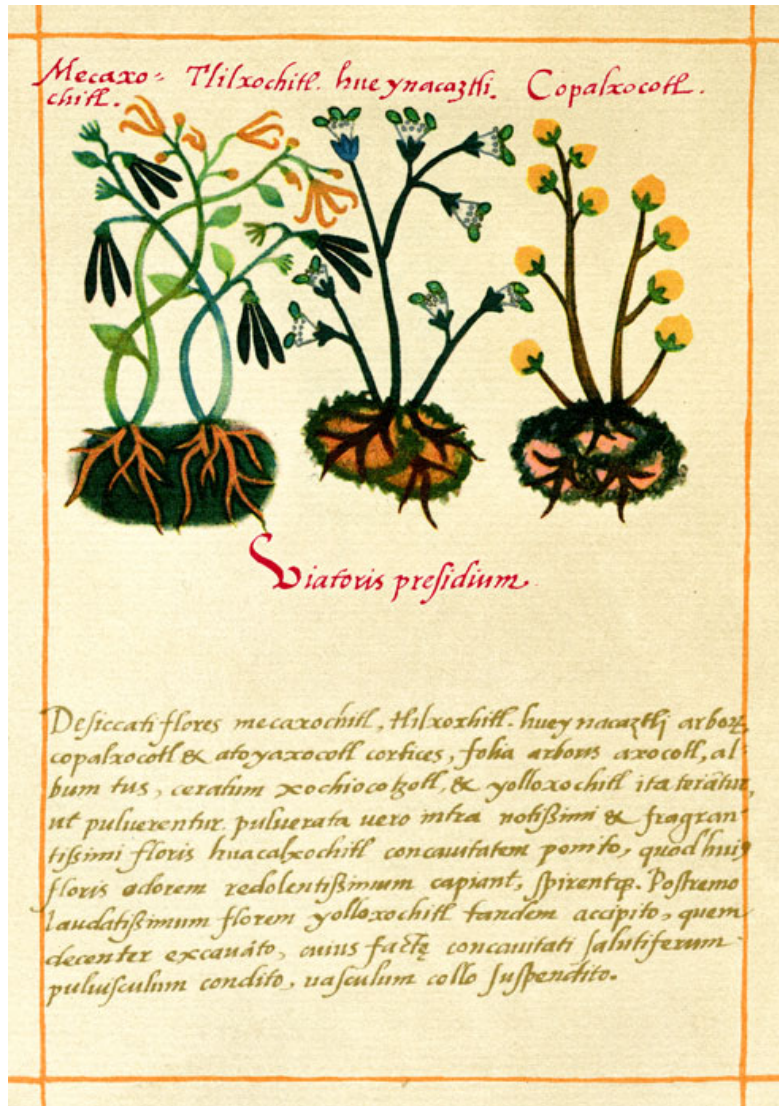 Mecaxo= Tlilxochitl. hueynacaztli. Copalxocotl.
chitl.
Viatoris presidium
Desiccati flores mecaxochitl, tlilxoxhitl. huey nacaztli arborꝝ,
copalxocotl & atoyaxocotl cortices, folia arboris axocotl, al-
bum tus, ceratum xochiocotzotl, & yolloxochitl ita terātur,
ut puluerentur. puluerata vero intra notißimi & fragran-
tißimi floris huacalxochitl concauitatem ponito, quod huiꝰ
floris odorem redolentißimum capiant, ſpirentqꝫ. Poſtremo
laudatißimum florem yolloxochitl tandem accipito, quem
decenter excauāto, cuius factę concauitati ſalutiferum
puluiſculum condito, uaſculum collo ſuſpendito.